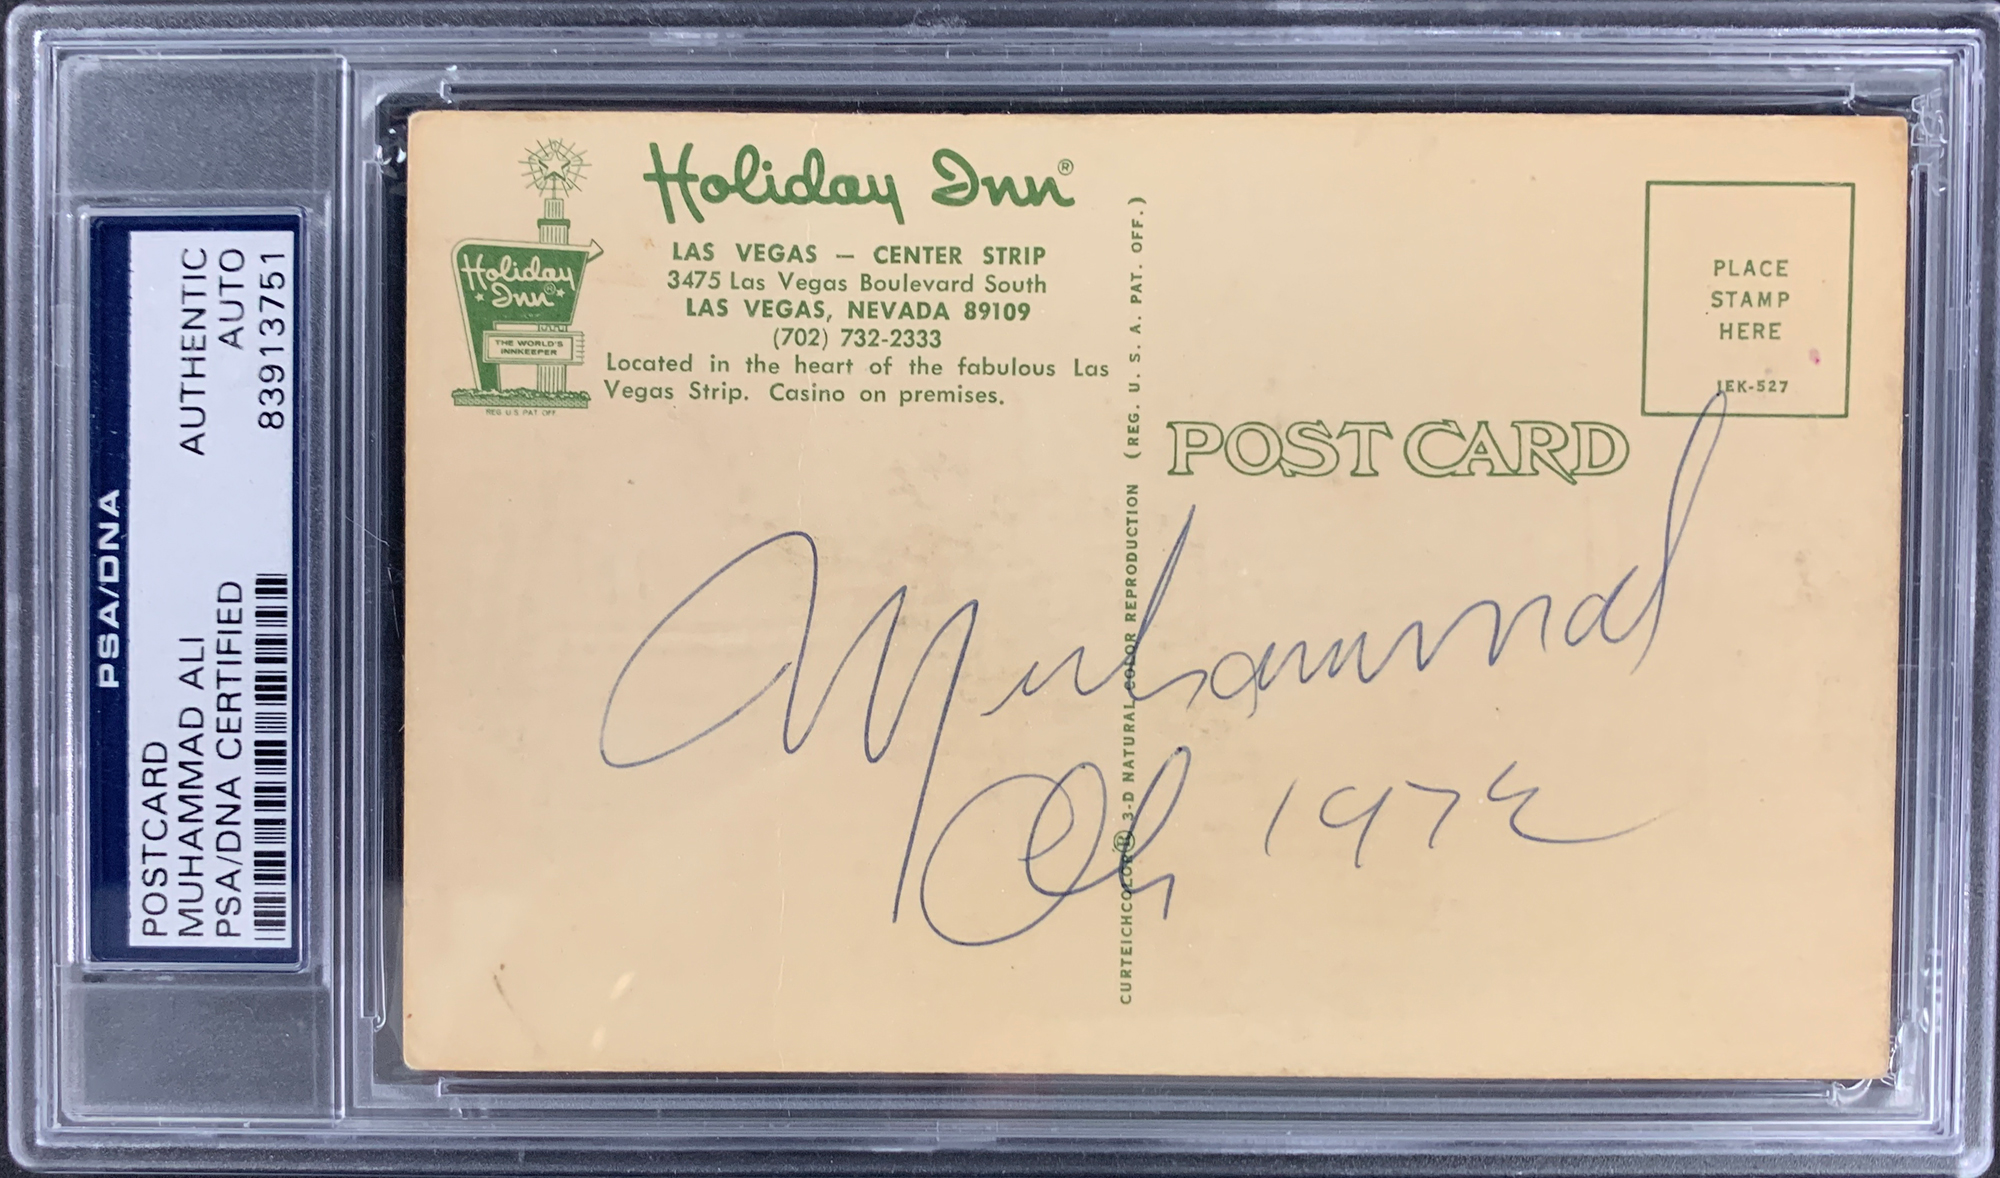 PSA/DNA
POSTCARD AUTHENTIC
MUHAMMAD ALI AUTO
PSA/DNA CERTIFIED 83913751
Holiday Inn®
LAS VEGAS — CENTER STRIP
3475 Las Vegas Boulevard South
LAS VEGAS, NEVADA 89109
(702) 732-2333
Located in the heart of the fabulous Las
Vegas Strip. Casino on premises.
Holiday
Inn®
THE WORLD'S
INNKEEPER
REG U S PAT OFF
CURTEICHCOLOR® 3-D NATURAL COLOR REPRODUCTION (REG. U. S. A. PAT. OFF.)
PLACE
STAMP
HERE
1EK-527
POST CARD
Muhammad
Ali 1972